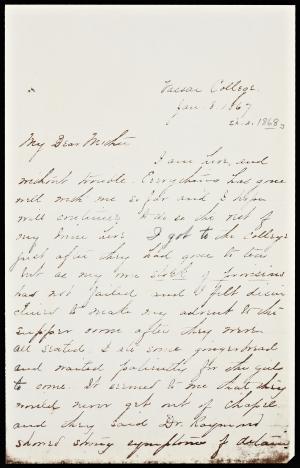 Vassar College.
Jan. 8. 1867
i.e. 1868
My Dear Mother
I am here, and
without trouble. Everything has gone
well with me so far and I hope
will continue to do so the rest of
my time here. I got to the College
just after they had gone to tea
but as my own stock of provisions
has not failed and I felt disin-
clined to make my advent to the
supper room after they were
all seated I ate some gingerbread
and waited patiently for the girls
to come. It seemed to me that they
would never get out of chapel
and they said Dr. Raymond
showed strong symptoms of